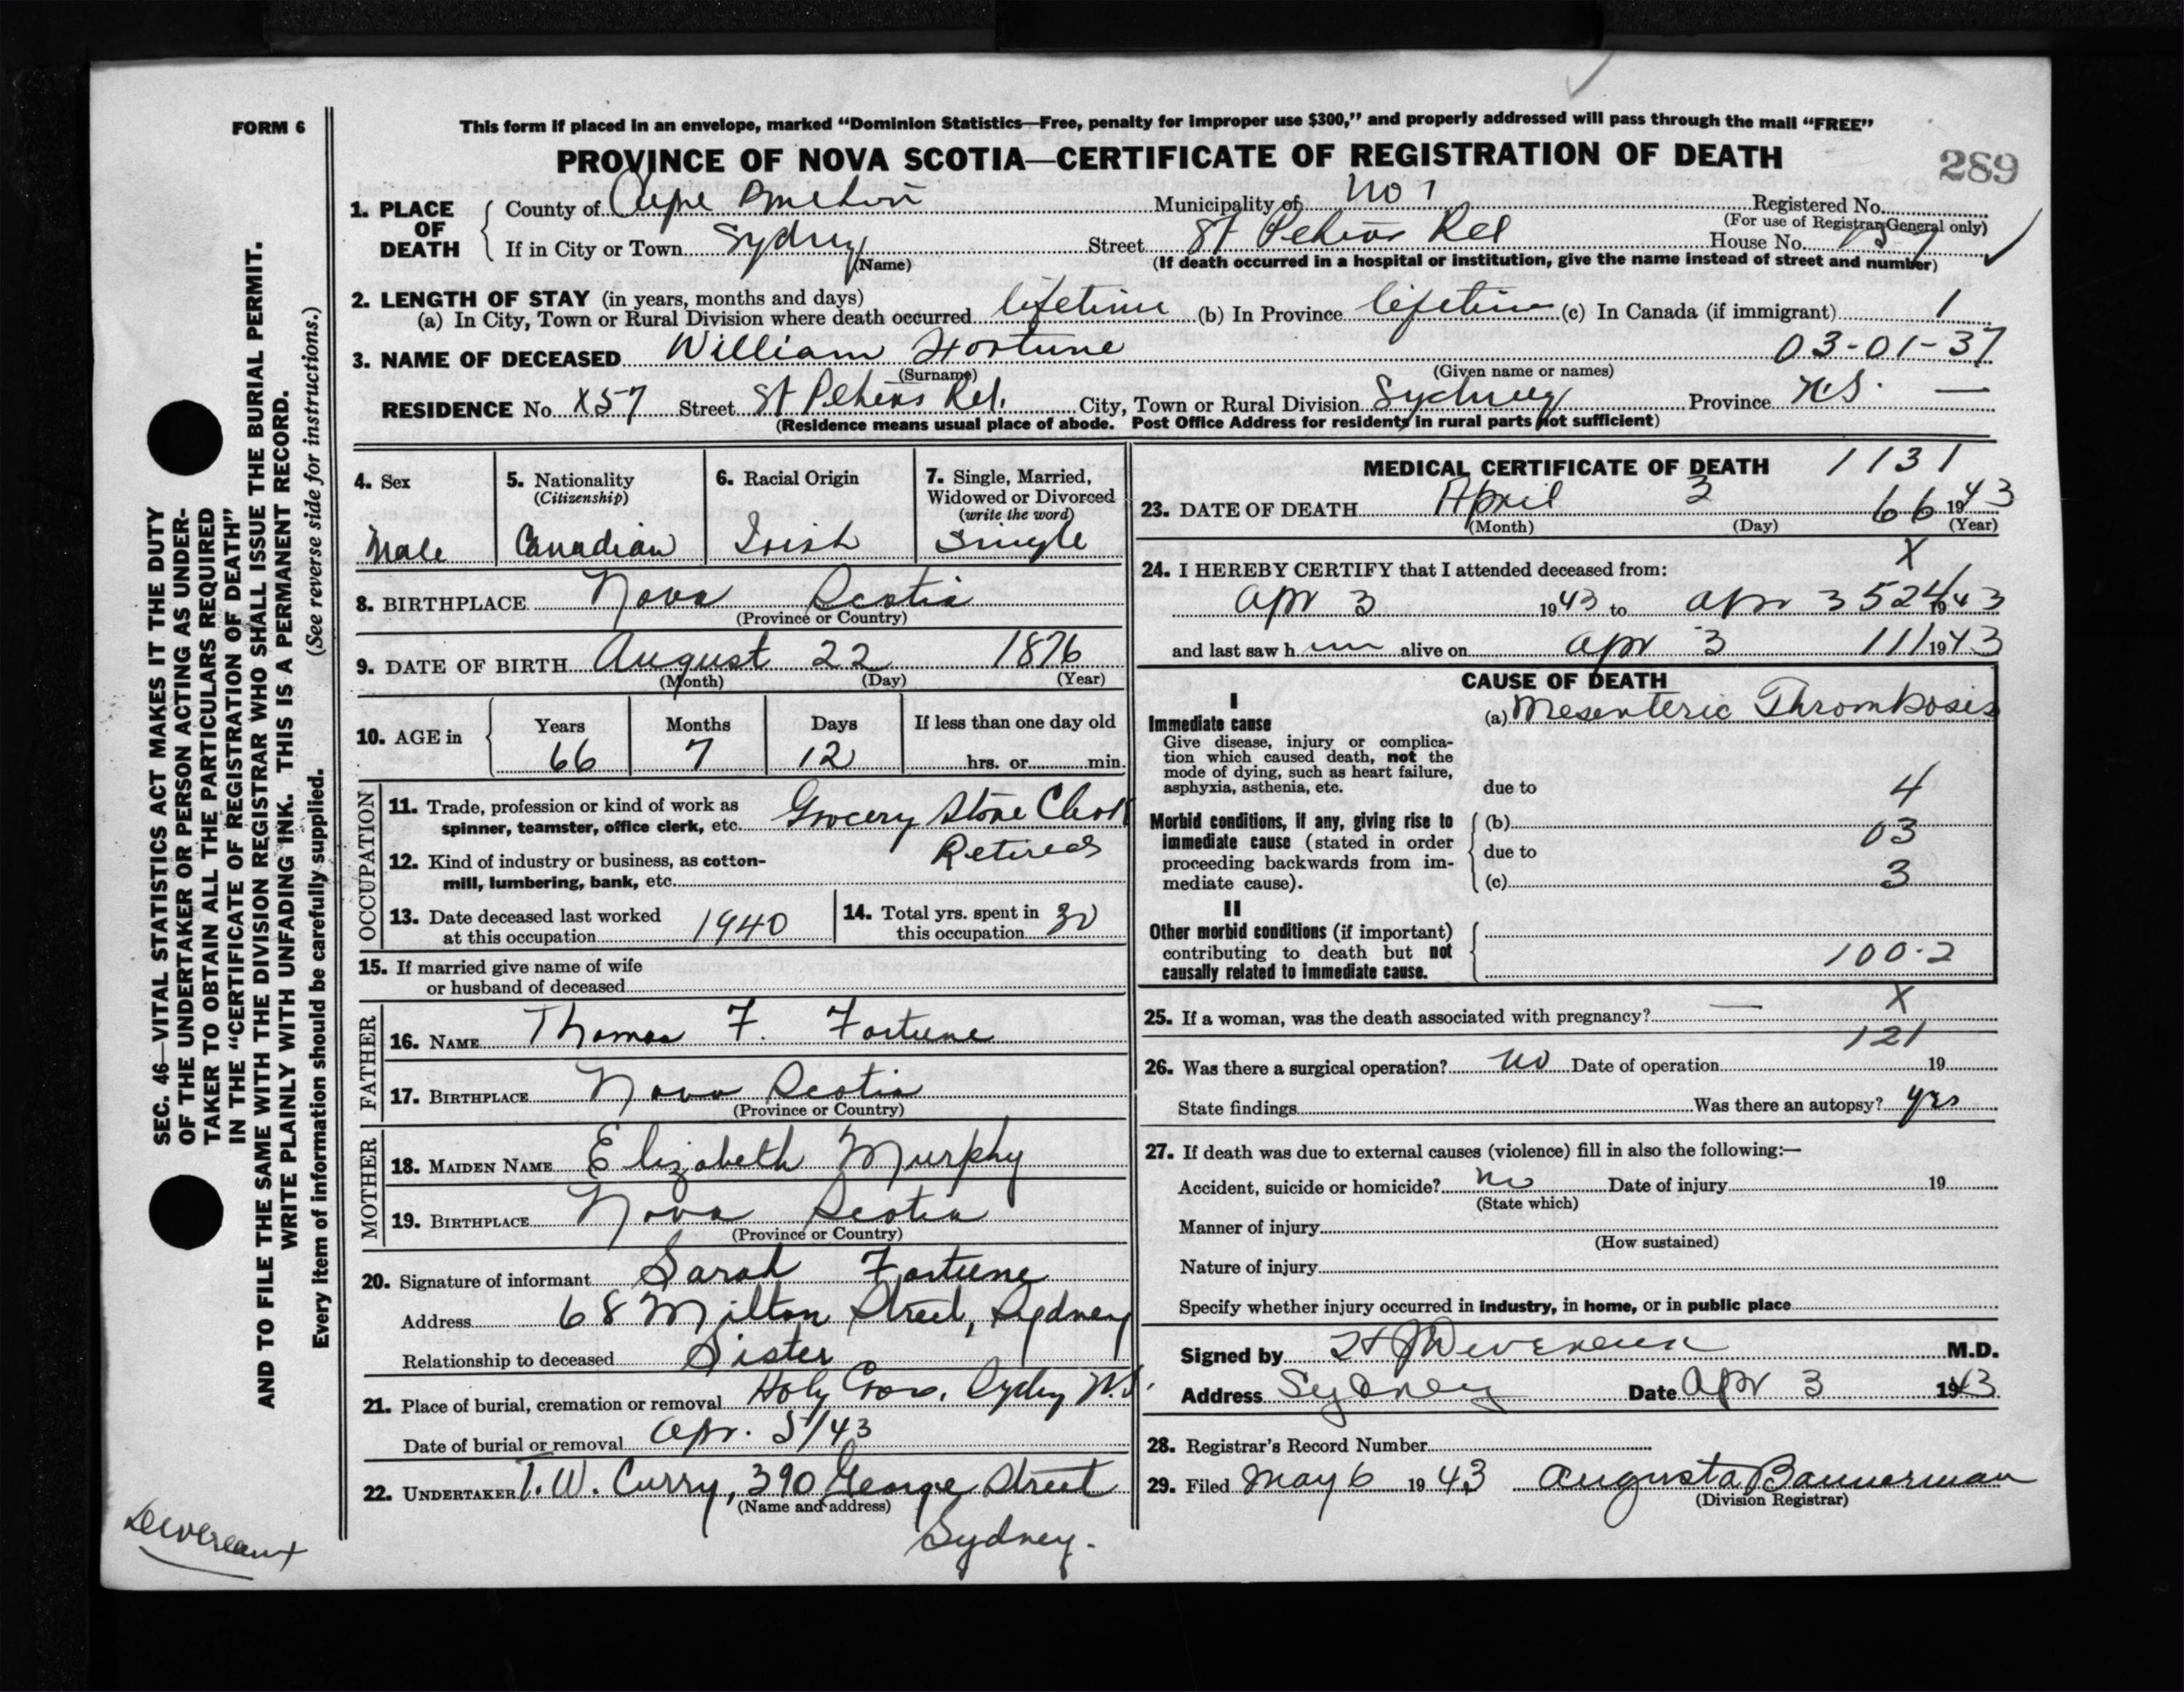 FORM 6
This form if placed in an envelope, marked “Dominion Statistics—Free, penalty for improper use $300,” and properly addressed will pass through the mail “FREE”
PROVINCE OF NOVA SCOTIA—CERTIFICATE OF REGISTRATION OF DEATH
289
1. PLACE OF DEATH
County of Cape Breton Municipality of No 1 Registered No.
(For use of Registrar General only)
If in City or Town Sydney Street St Peters Rd House No.
(Name) (If death occurred in a hospital or institution, give the name instead of street and number)
2. LENGTH OF STAY (in years, months and days)
(a) In City, Town or Rural Division where death occurred lifetime (b) In Province lifetime (c) In Canada (if immigrant) 1
3. NAME OF DECEASED William Fortune 03-01-37
(Surname) (Given name or names)
RESIDENCE No. X57 Street St Peters Rd. City, Town or Rural Division Sydney Province N.S. —
(Residence means usual place of abode. Post Office Address for residents in rural parts not sufficient)
4. Sex
Male
5. Nationality
(Citizenship)
Canadian
6. Racial Origin
Irish
7. Single, Married,
Widowed or Divorced
(write the word)
Single
8. BIRTHPLACE Nova Scotia
(Province or Country)
9. DATE OF BIRTH August 22 1876
(Month) (Day) (Year)
10. AGE in
Years Months Days If less than one day old
66 7 12 hrs. or min.
OCCUPATION
11. Trade, profession or kind of work as
spinner, teamster, office clerk, etc. Grocery Store Clerk
12. Kind of industry or business, as cotton- Retired
mill, lumbering, bank, etc.
13. Date deceased last worked
at this occupation 1940
14. Total yrs. spent in
this occupation 30
15. If married give name of wife
or husband of deceased
FATHER
16. NAME Thomas F. Fortune
17. BIRTHPLACE Nova Scotia
(Province or Country)
MOTHER
18. MAIDEN NAME Elizabeth Murphy
19. BIRTHPLACE Nova Scotia
(Province or Country)
20. Signature of informant Sarah Fortune
Address 68 Milton Street, Sydney
Relationship to deceased Sister
21. Place of burial, cremation or removal Holy Cross, Sydney N.S.
Date of burial or removal Apr. 5/43
22. UNDERTAKER T. W. Curry, 390 George Street
(Name and address)
Sydney.
MEDICAL CERTIFICATE OF DEATH 1131
23. DATE OF DEATH April 3 66 1943
(Month) (Day) (Year)
X
24. I HEREBY CERTIFY that I attended deceased from:
Apr 3 1943 to Apr 3 524 1943
and last saw h im alive on Apr 3 111 1943
CAUSE OF DEATH
I
Immediate cause
Give disease, injury or complica-
tion which caused death, not the
mode of dying, such as heart failure,
asphyxia, asthenia, etc.
(a) Mesenteric Thrombosis
due to 4
Morbid conditions, if any, giving rise to
immediate cause (stated in order
proceeding backwards from im-
mediate cause).
(b) 03
due to
(c) 3
II
Other morbid conditions (if important)
contributing to death but not
causally related to immediate cause.
100.2
X
25. If a woman, was the death associated with pregnancy? —
121
26. Was there a surgical operation? No Date of operation 19
State findings Was there an autopsy? yes
27. If death was due to external causes (violence) fill in also the following:—
Accident, suicide or homicide? No Date of injury 19
(State which)
Manner of injury
(How sustained)
Nature of injury
Specify whether injury occurred in industry, in home, or in public place
Signed by H J Devereux M.D.
Address Sydney Date Apr 3 1943
28. Registrar's Record Number
29. Filed May 6 1943 Augusta Bannerman
(Division Registrar)
SEC. 46—VITAL STATISTICS ACT MAKES IT THE DUTY
OF THE UNDERTAKER OR PERSON ACTING AS UNDER-
TAKER TO OBTAIN ALL THE PARTICULARS REQUIRED
IN THE “CERTIFICATE OF REGISTRATION OF DEATH”
AND TO FILE THE SAME WITH THE DIVISION REGISTRAR WHO SHALL ISSUE THE BURIAL PERMIT.
WRITE PLAINLY WITH UNFADING INK. THIS IS A PERMANENT RECORD.
Every item of information should be carefully supplied. (See reverse side for instructions.)
Devereaux